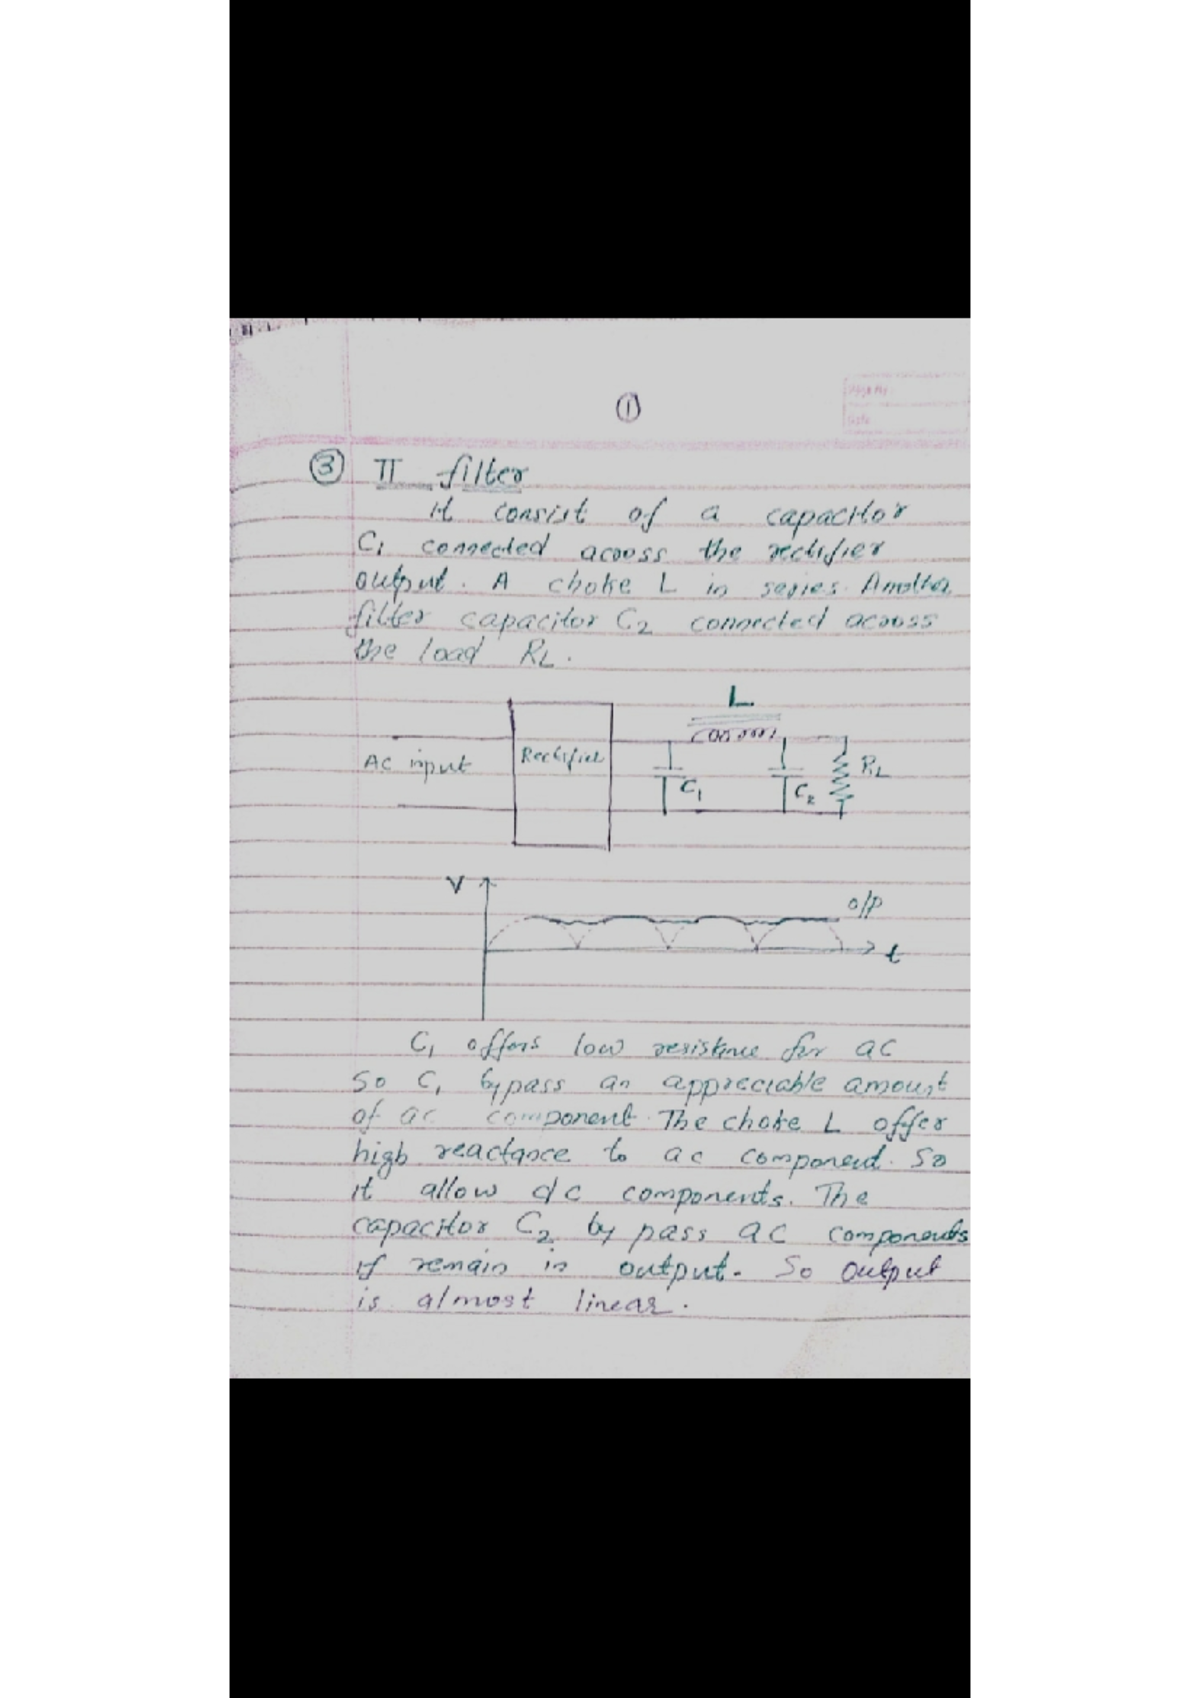 ①
③ π filter
It consist of a capacitor
C1 connected across the rectifier
output. A choke L in series. Another
filter capacitor C2 connected across
the load RL.
L
AC input
Rectifier
C1
C2
RL
V
o/p
t
C1 offers low resistance for ac
So C1 bypass an appreciable amount
of ac component. The choke L offer
high reactance to ac component. So
it allow dc components. The
capacitor C2 by pass ac components
if remain in output. So output
is almost linear.